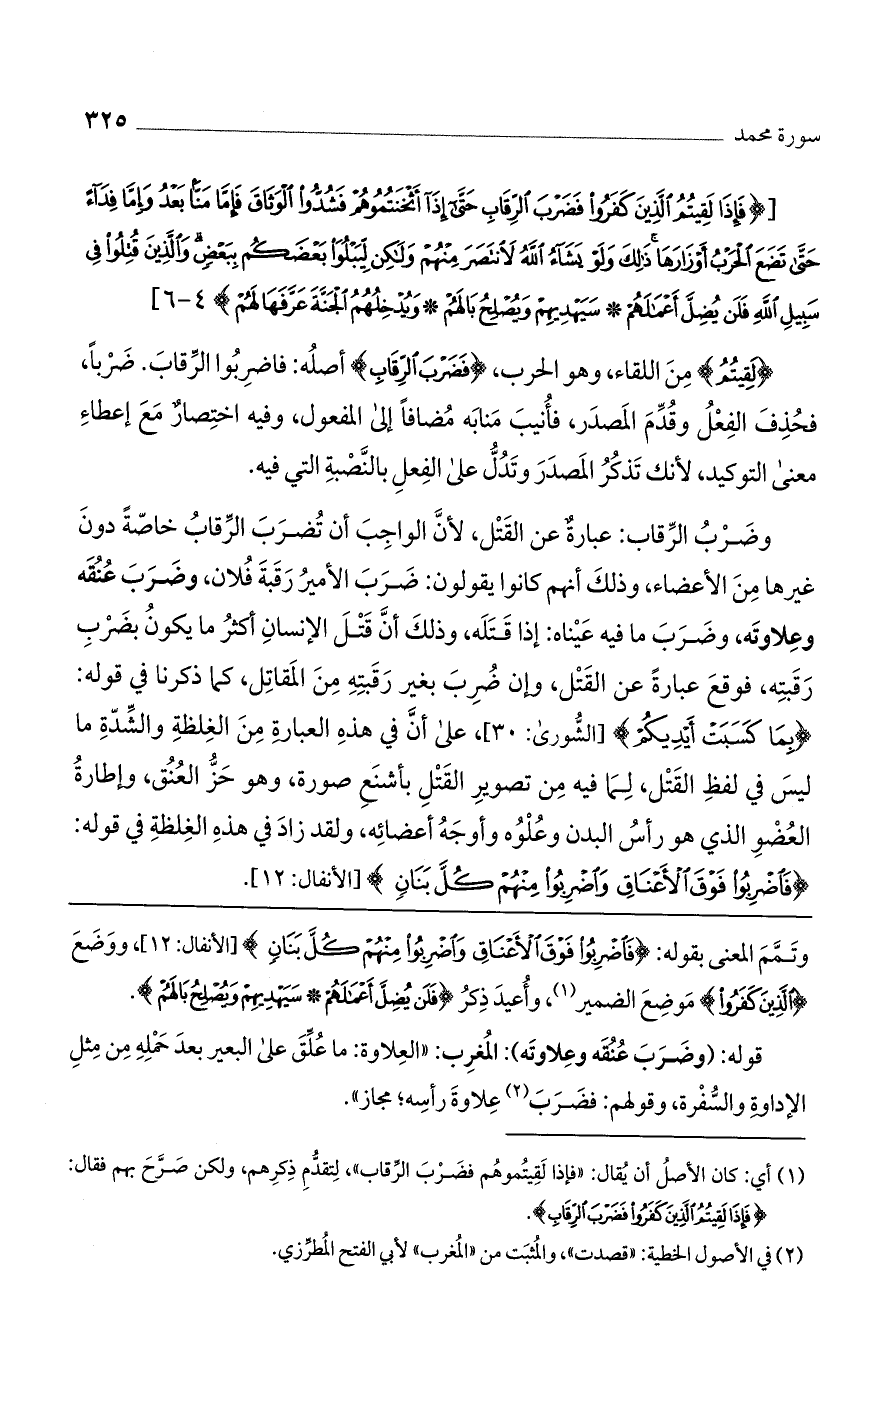 سورة محمد ٣٢٥
[﴿ فَإِذَا لَقِيتُمُ الَّذِينَ كَفَرُوا فَضَرْبَ الرِّقَابِ حَتَّىٰ إِذَا أَثْخَنتُمُوهُمْ فَشُدُّوا الْوَثَاقَ فَإِمَّا مَنًّا بَعْدُ وَإِمَّا فِدَاءً
حَتَّىٰ تَضَعَ الْحَرْبُ أَوْزَارَهَا ۚ ذَٰلِكَ وَلَوْ يَشَاءُ اللَّهُ لَانتَصَرَ مِنْهُمْ وَلَٰكِن لِّيَبْلُوَا بَعْضَكُم بِبَعْضٍ ۗ وَالَّذِينَ قُتِلُوا فِي
سَبِيلِ اللَّهِ فَلَن يُضِلَّ أَعْمَالَهُمْ * سَيَهْدِيهِمْ وَيُصْلِحُ بَالَهُمْ * وَيُدْخِلُهُمُ الْجَنَّةَ عَرَّفَهَا لَهُمْ ﴾ ٤-٦]
﴿لَقِيتُمُ﴾ مِنَ اللقاء، وهو الحرب، ﴿فَضَرْبَ الرِّقَابِ﴾ أصلُه: فاضرِبُوا الرِّقابَ. ضَرْباً،
فحُذِفَ الفِعْلُ وقُدِّمَ المَصدَر، فأُنيبَ مَنابَه مُضافاً إلىٰ المفعول، وفيه اختِصارٌ مَعَ إعطاءِ
معنىٰ التوكيد، لأنك تَذكُرُ المَصدَرَ وتَدُلُّ علىٰ الفِعلِ بالنَّصْبةِ التي فيه.
وضَرْبُ الرِّقاب: عبارةٌ عن القَتْل، لأنَّ الواجِبَ أن تُضرَبَ الرِّقابُ خاصّةً دونَ
غيرِها مِنَ الأعضاء، وذلكَ أنهم كانوا يقولون: ضَرَبَ الأميرُ رَقَبةَ فُلان، وضَرَبَ عُنُقَه
وعِلاوتَه، وضَرَبَ ما فيه عَيْناه: إذا قَتَلَه، وذلكَ أنَّ قَتْلَ الإنسانِ أكثرُ ما يكونُ بضَرْبِ
رَقَبتِه، فوقعَ عبارةً عن القَتْل، وإن ضُرِبَ بغيرِ رَقَبتِهِ مِنَ المَقاتِل، كما ذكرنا في قوله:
﴿بِمَا كَسَبَتْ أَيْدِيكُمْ﴾ [الشُّورىٰ: ٣٠]، علىٰ أنَّ في هذهِ العبارةِ مِنَ الغِلظةِ والشِّدّةِ ما
ليسَ في لفظِ القَتْل، لِما فيه مِن تصويرِ القَتْلِ بأشنَعِ صورة، وهو حَزُّ العُنُق، وإطارةُ
العُضْوِ الذي هو رأسُ البدن وعُلْوُه وأوجَهُ أعضائِه، ولقد زادَ في هذهِ الغِلظةِ في قوله:
﴿فَاضْرِبُوا فَوْقَ الْأَعْنَاقِ وَاضْرِبُوا مِنْهُمْ كُلَّ بَنَانٍ ﴾ [الأنفال: ١٢].
وتَمَّمَ المعنى بقوله: ﴿فَاضْرِبُوا فَوْقَ الْأَعْنَاقِ وَاضْرِبُوا مِنْهُمْ كُلَّ بَنَانٍ ﴾ [الأنفال: ١٢]، ووَضَعَ
﴿الَّذِينَ كَفَرُوا﴾ مَوضِعَ الضمير(١)، وأُعيدَ ذِكرُ ﴿فَلَن يُضِلَّ أَعْمَالَهُمْ * سَيَهْدِيهِمْ وَيُصْلِحُ بَالَهُمْ﴾.
قوله: (وضَرَبَ عُنُقَه وعِلاوتَه): المُغرِب: «العِلاوة: ما عُلِّقَ علىٰ البعير بعدَ حَمْلِهِ مِن مِثلِ
الإداوةِ والسُّفْرة، وقولهم: فضَرَبَ(٢) عِلاوةَ رأسِه؛ مجاز».
(١) أي: كان الأصلُ أن يُقال: «فإذا لَقِيتُموهُم فضَرْبَ الرِّقاب»، لِتقدُّمِ ذِكرِهم، ولكن صَرَّحَ بهم فقال:
﴿ فَإِذَا لَقِيتُمُ الَّذِينَ كَفَرُوا فَضَرْبَ الرِّقَابِ﴾.
(٢) في الأصول الخطية: «قصدت»، والمُثبَت من «المُغرب» لأبي الفتح المُطرِّزي.